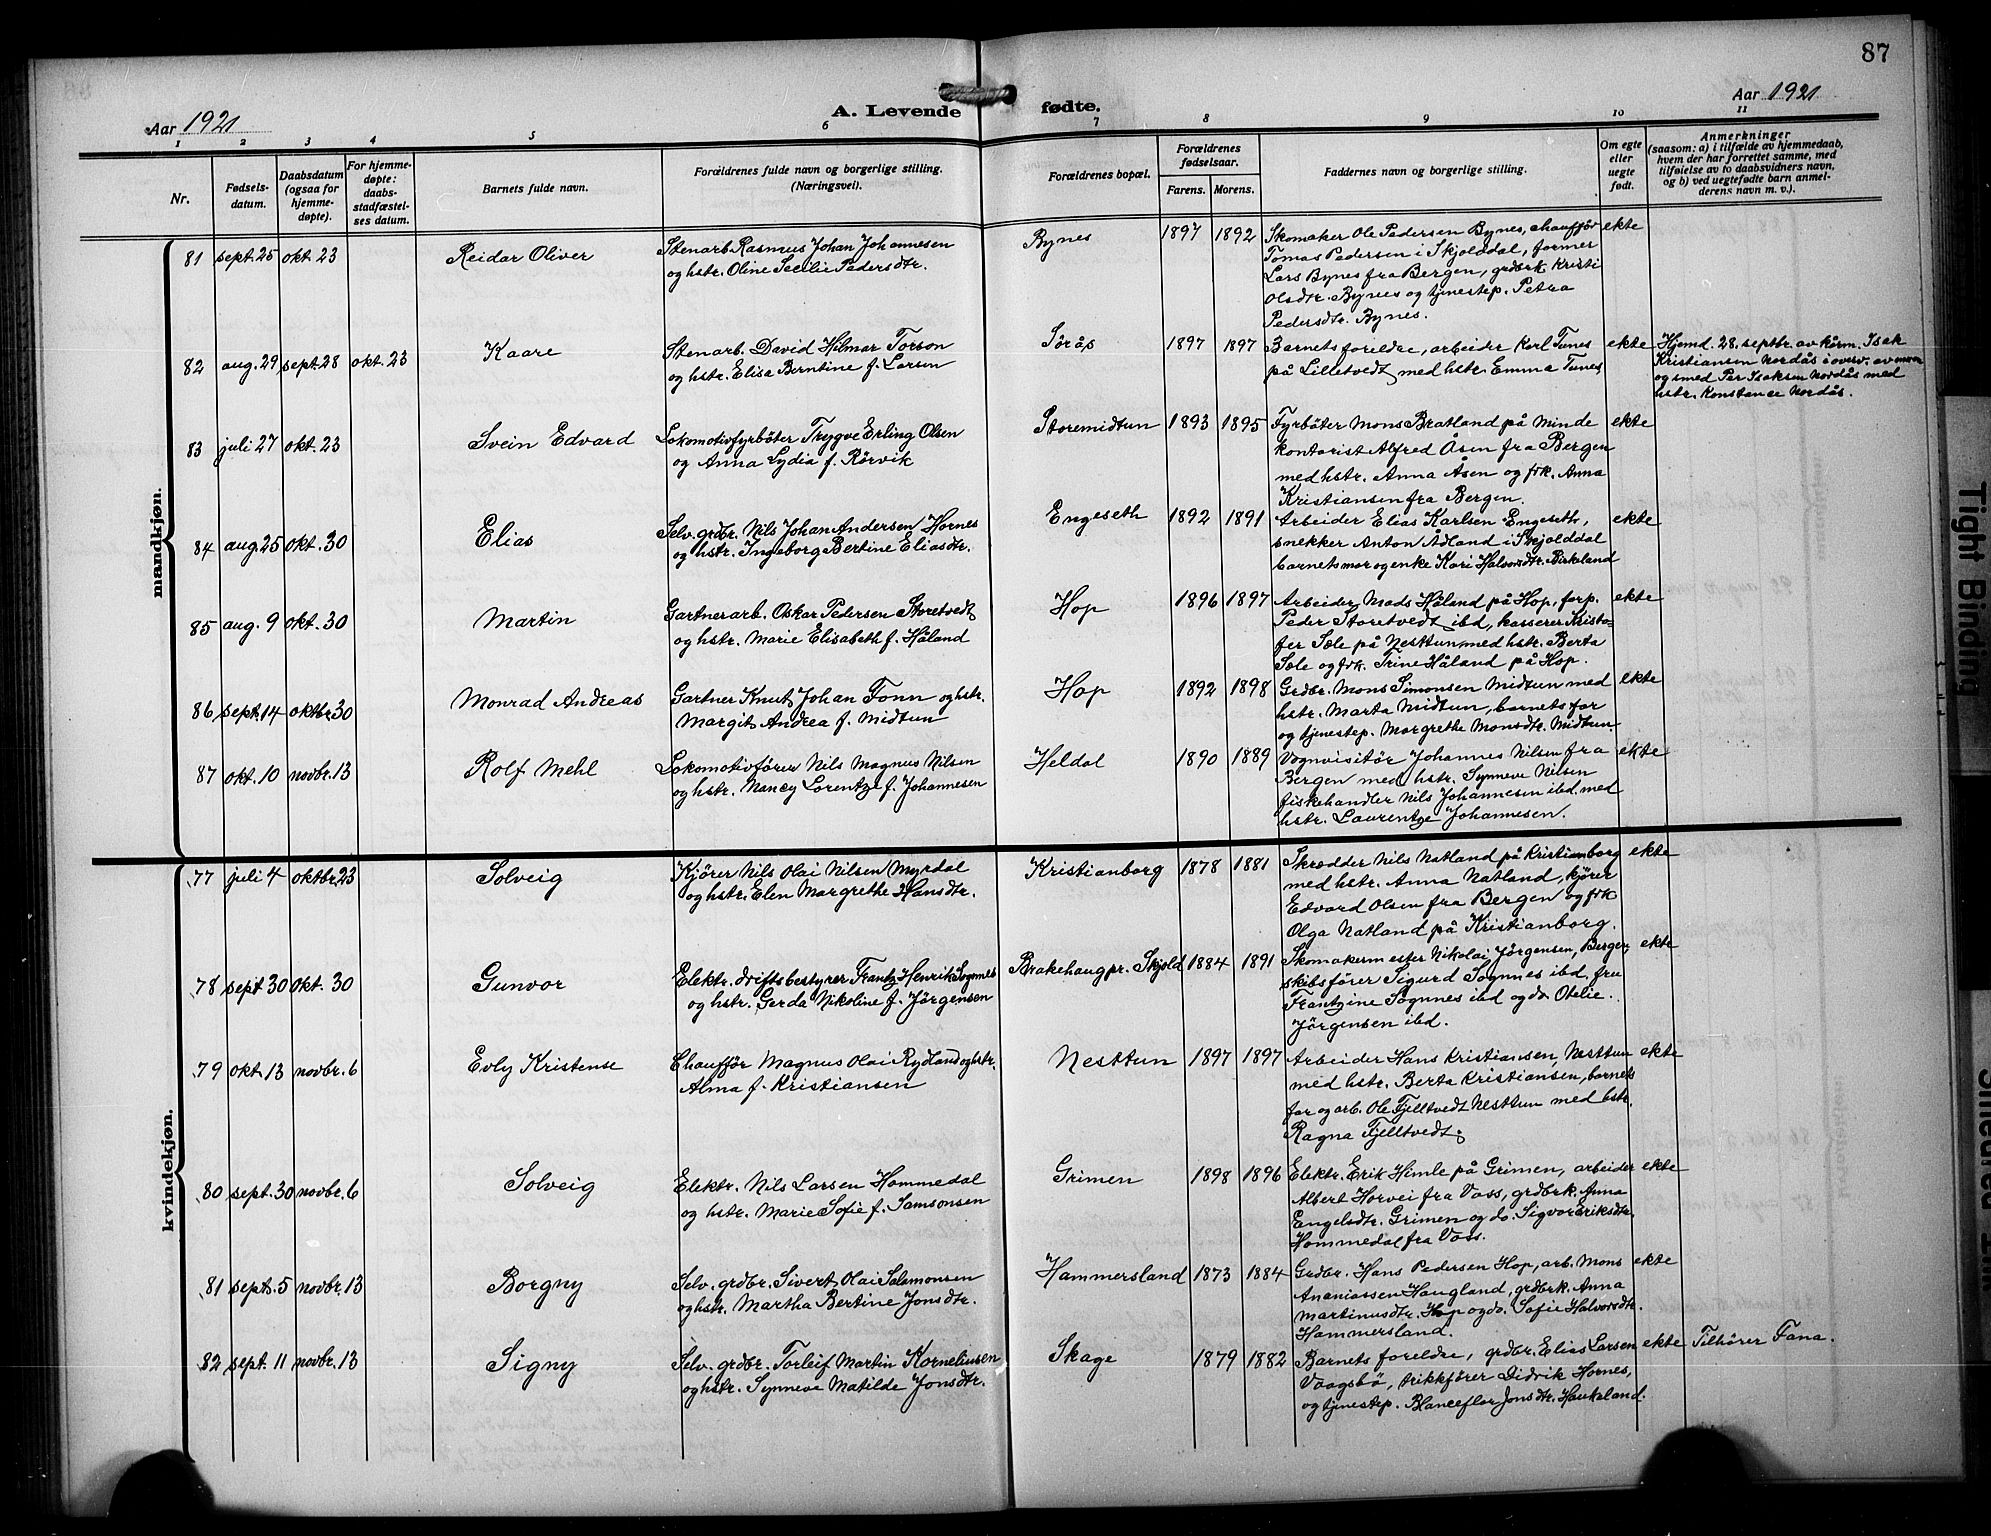 87
Aar 1921
A. Levende fødte.
Aar 1921
1 2 3 4 5 6 7 8 9 10 11
Nr.
Fødsels-
datum.
Daabsdatum
(ogsaa for
hjemme-
døpte).
For hjemme-
døpte:
daabs-
stadfæstel-
ses datum.
Barnets fulde navn.
Forældrenes fulde navn og borgerlige stilling.
(Næringsvei).
Forældrenes bopæl.
Forældrenes
fødselsaar.
Farens. Morens.
Faddernes navn og borgerlige stilling.
Om egte
eller
uegte
født.
Anmerkninger
(saasom: a) i tilfælde av hjemmedaab,
hvem der har forrettet samme, med
tilføielse av to daabsvidners navn,
og b) ved uegtefødte barn anmel-
derens navn m. v.).
mandkjøn.
81 sept. 25 okt. 23 Reidar Oliver
Stenarb. Rasmus Johan Johannesen
og hstr. Oline Secilie Pedersdtr.
Bynes 1897 1892
Skomaker Ole Pedersen Bynes, chaufför
Tomas Pedersen i Skjolddal, former
Lars Bynes fra Bergen, grdbrk. Kristi
Olsdtr. Bynes og tjenestep. Petra
Pedersdtr. Bynes.
ekte
82 aug. 29 sept. 28 okt. 23 Kaare
Stenarb. David Hilmar Torson
og hstr. Elisa Berntine f. Larsen
Sörås 1897 1897
Barnets foreldre, arbeider Karl Tunes
på Lilletvedt med hstr. Emma Tunes
ekte
Hjemd. 28. septbr. av kårm. Isak
Kristiansen Nordås i overv. av moren
og smed Per Isaksen Nordås med
hstr. Konstance Nordås.
83 juli 27 okt. 23 Svein Edvard
Lokomotivfyrböter Trygve Erling Olsen
og Anna Lydia f. Rörvik
Storemidtun 1893 1895
Fyrböter Mons Bratland på Minde
kontorist Alfred Åsen fra Bergen
med hstr. Anna Åsen og frk. Anna
Kristiansen fra Bergen.
ekte
84 aug 25 okt. 30 Elias
Selv. grdbr. Nils Johan Andersen Hornes
og hstr. Ingeborg Bertine Eliasdtr.
Engeseth 1892 1891
Arbeider Elias Karlsen Engeseth,
snekker Anton Ådland i Skjolddal
barnets mor og enke Kari Halvorsdtr. Birkeland
ekte
85 aug. 9 okt. 30 Martin
Gartnerarb. Oskar Pedersen Storetvedt
og hstr. Marie Elisabeth f. Håland
Hop 1896 1897
Arbeider Mads Håland på Hop, forp.
Peder Storetvedt ibd, kasserer Kristo-
fer Sæle på Nesttun, med hstr. Berta
Sæle og frk. Trine Håland på Hop.
ekte
86 sept. 14 oktbr. 30 Monrad Andreas
Gartner Knut Johan Fonn og hstr.
Margit Andrea f. Midtun
Hop 1892 1898
Grdbr. Mons Simonsen Midtun med
hstr. Marta Midtun, barnets far
og tjenestep. Margrethe Monsdtr. Midtun.
ekte
87 okt. 10 novbr. 13 Rolf Mehl
Lokomotivförer Nils Magnus Nilsen
og hstr. Nancy Lorentze f. Johannesen
Heldal 1890 1889
Vognvisitör Johannes Nilsen fra
Bergen med hstr. Synneve Nilsen
fiskehandler Nils Johannesen ibd. med
hstr. Laurentze Johannesen.
ekte
kvindekjøn.
77 juli 4 oktbr. 23 Solveig
Kjörer Nils Olai Nilsen Myrdal
og hstr. Elen Margrethe Hansdtr.
Kristianborg 1878 1881
Skrædder Nils Natland på Kristianborg
med hstr. Anna Natland, kjörer
Edvard Olsen fra Bergen og frk
Olga Natland på Kristianborg.
ekte
78 sept 30 okt. 30 Gunvor
Elektr. driftsbestyrer Frantz Henrik Sognnes
og hstr. Gerda Nikoline f. Jörgensen
Brakehaug pr. Skjold 1884 1891
Skomakermester Nikolai Jörgensen, Bergen,
skibsförer Sigurd Sognnes ibd. fru
Frantzine Sognnes ibd og do. Otelie
Jörgensen ibd.
ekte
79 okt. 13 novbr. 6 Evly Kristense
Chaufför Magnus Olai Rydland og hstr.
Alma f. Kristiansen
Nesttun 1897 1897
Arbeider Hans Kristiansen, Nesttun
med hstr. Berta Kristiansen, barnets
far og arb. Ole Fjelltvedt Nesttun med hstr.
Ragna Fjelltvedt.
ekte
80 sept. 30 novbr. 6 Solveig
Elektr. Nils Larsen Hommedal
og hstr. Marie Sofie f. Samsonsen
Grimen 1898 1896
Elektr. Erik Himle på Grimen, arbeider
Albert Horvei fra Voss, grdbrk. Anna
Engelsdtr. Grimen og do. Sigvor Eriksdtr.
Hommedal fra Voss.
ekte
81 sept. 5 novbr. 13 Borgny
Selv. grdbr. Sivert Olai Salomonsen
og hstr. Martha Bertine Jonsdtr.
Hammersland 1873 1884
Grdbr. Hans Pedersen Hop, arb. Mons
Ananiassen Haugland, grdbrk. Anna
Martinusdtr. Hop og do. Sofie Halvorsdtr.
Hammersland.
ekte
82 sept. 11 novbr. 13 Signy
Selv. grdbr. Torleif Martin Korneliusen
og hstr. Synneve Matilde Jonsdtr.
Skage 1879 1882
Barnets foreldre, grdbr. Elias Larsen
Vaagsbö, trikkförer Didrik Hornes,
og tjenestep. Blanceflor Jonsdtr. Haukeland.
ekte
Tilhörer Fana.
Tight Binding